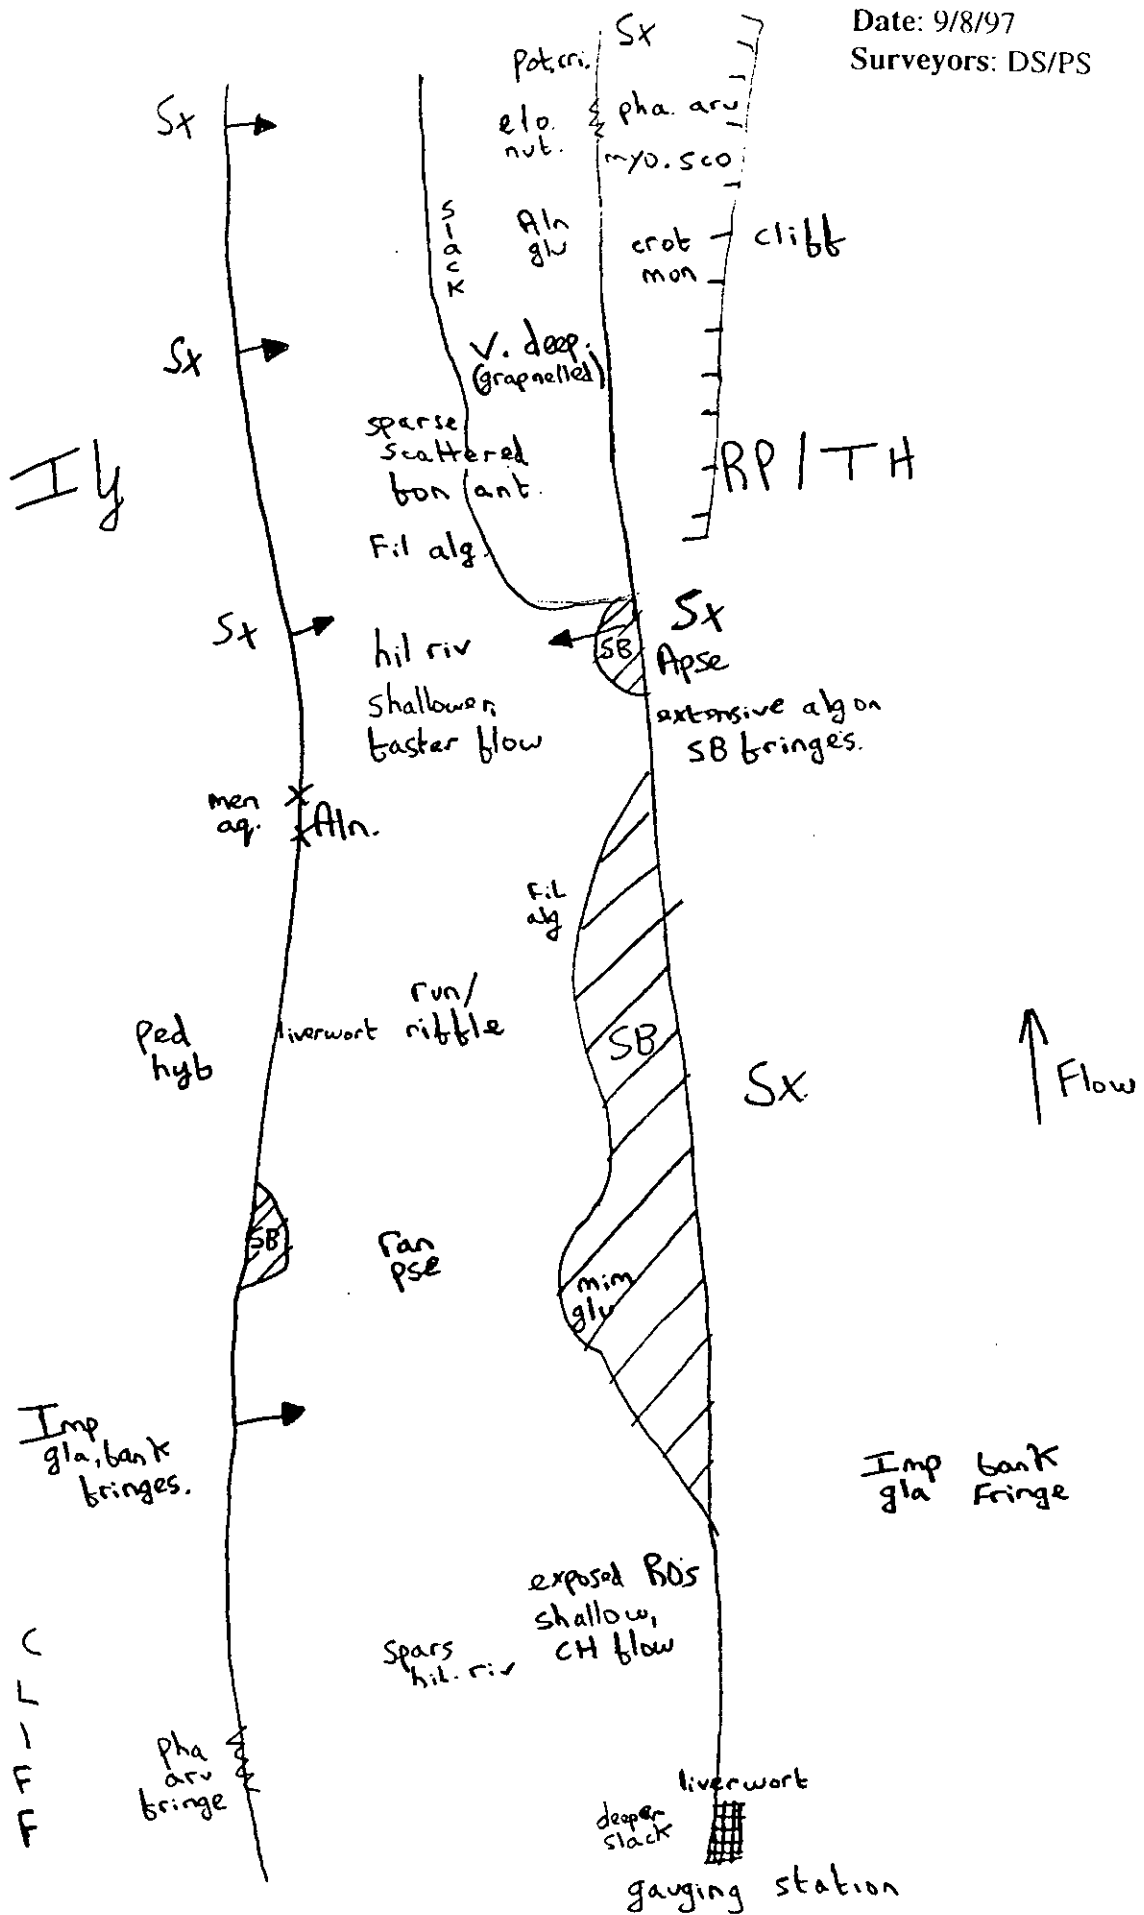 Date: 9/8/97
Surveyors: DS/PS
Sx
Pot.cri.
Sx
elo.
nut.
pha. aru
myo. sco
Slack
Aln
glu
crot
mon
cliff
Sx
V. deep.
(grapnelled)
sparse
scattered
fon ant.
RP / TH
Fil alg.
Sx
hil riv
SB
Sx
Apse
shallower,
faster flow
extensive alg on
SB fringes.
men
aq.
Aln.
Fil
alg
Ped
hyb
liverwort
run/
riffle
SB
Sx.
Flow
SB
ran
pse
mim
glu
Imp
gla, bank
fringes.
Imp bank
gla Fringe
exposed BO's
shallow,
CH flow
Spars
hil. riv
CLIFF
pha
aru
fringe
liverwort
deeper
slack
gauging station